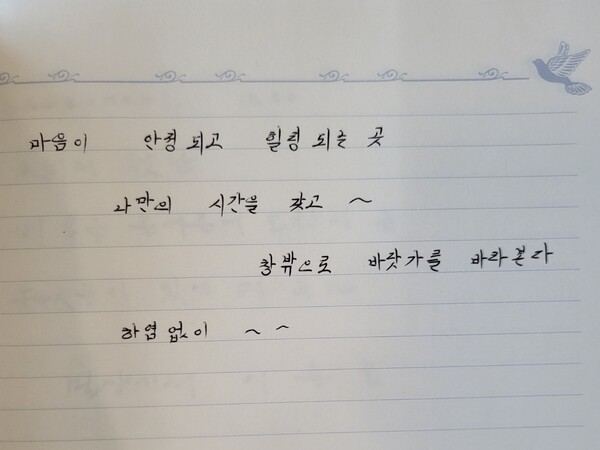 마음이 안정되고 힐링되는 곳
나만의 시간을 갖고 ~
창밖으로 바닷가를 바라본다
하염없이 ~ ~